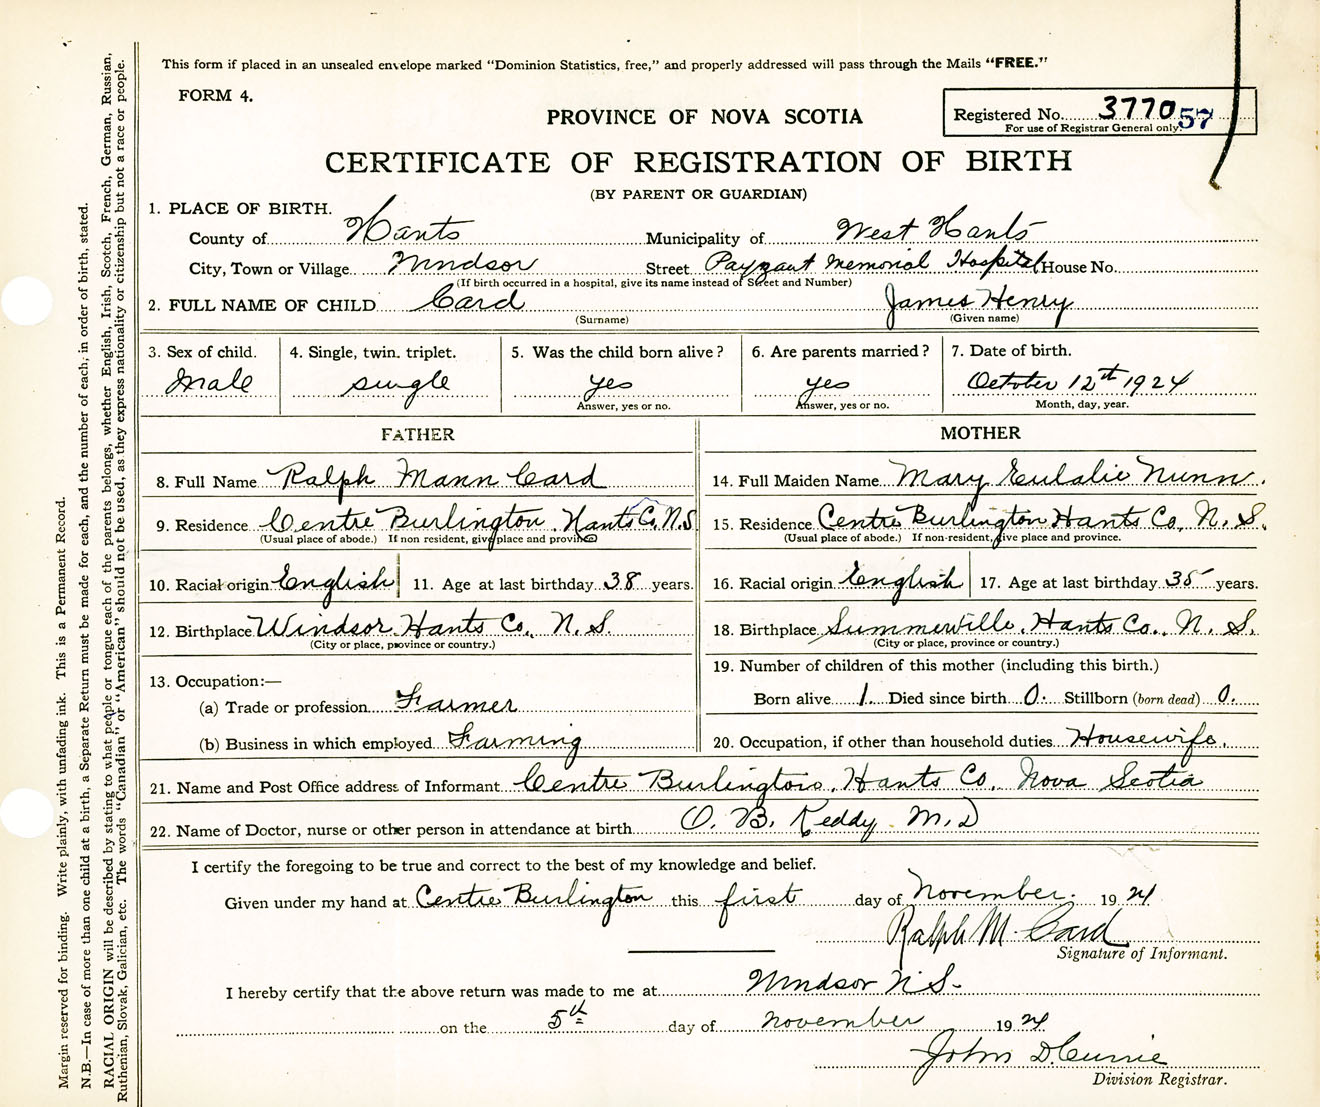 This form if placed in an unsealed envelope marked "Dominion Statistics, free," and properly addressed will pass through the Mails "FREE."
FORM 4.
PROVINCE OF NOVA SCOTIA
Registered No. 3770 57
For use of Registrar General only.
CERTIFICATE OF REGISTRATION OF BIRTH
(BY PARENT OR GUARDIAN)
1. PLACE OF BIRTH.
County of Hants Municipality of West Hants
City, Town or Village Windsor Street Payzant Memorial Hospital House No.
(If birth occurred in a hospital, give its name instead of Street and Number)
2. FULL NAME OF CHILD Card James Henry
(Surname) (Given name)
3. Sex of child. 4. Single, twin, triplet. 5. Was the child born alive? 6. Are parents married? 7. Date of birth.
Male single yes yes October 12th 1924
Answer, yes or no. Answer, yes or no. Month, day, year.
FATHER MOTHER
8. Full Name Ralph Mann Card 14. Full Maiden Name Mary Eulalie Nunn.
9. Residence Centre Burlington, Hants Co, N.S. 15. Residence Centre Burlington Hants Co, N. S.
(Usual place of abode.) If non resident, give place and province (Usual place of abode.) If non-resident, give place and province.
10. Racial origin English 11. Age at last birthday 38 years. 16. Racial origin English 17. Age at last birthday 35 years.
12. Birthplace Windsor, Hants Co., N. S. 18. Birthplace Summerville, Hants Co., N. S.
(City or place, province or country.) (City or place, province or country.)
13. Occupation:— 19. Number of children of this mother (including this birth.)
(a) Trade or profession Farmer Born alive 1. Died since birth 0. Stillborn (born dead) 0.
(b) Business in which employed Farming 20. Occupation, if other than household duties Housewife.
21. Name and Post Office address of Informant Centre Burlington, Hants Co, Nova Scotia
22. Name of Doctor, nurse or other person in attendance at birth O. B. Keddy M.D
I certify the foregoing to be true and correct to the best of my knowledge and belief.
Given under my hand at Centre Burlington this first day of November. 19 24
Ralph M. Card
Signature of Informant.
I hereby certify that the above return was made to me at Windsor N.S.
on the 5th day of November 19 24
John D. Currie
Division Registrar.
Margin reserved for binding. Write plainly, with unfading ink. This is a Permanent Record.
N.B.—In case of more than one child at a birth, a Separate Return must be made for each, and the number of each; in order of birth, stated.
RACIAL ORIGIN will be described by stating to what people or tongue each of the parents belongs, whether English, Irish, Scotch, French, German, Russian,
Ruthenian, Slovak, Galician, etc. The words "Canadian" or "American" should not be used, as they express nationality or citizenship but not a race or people.